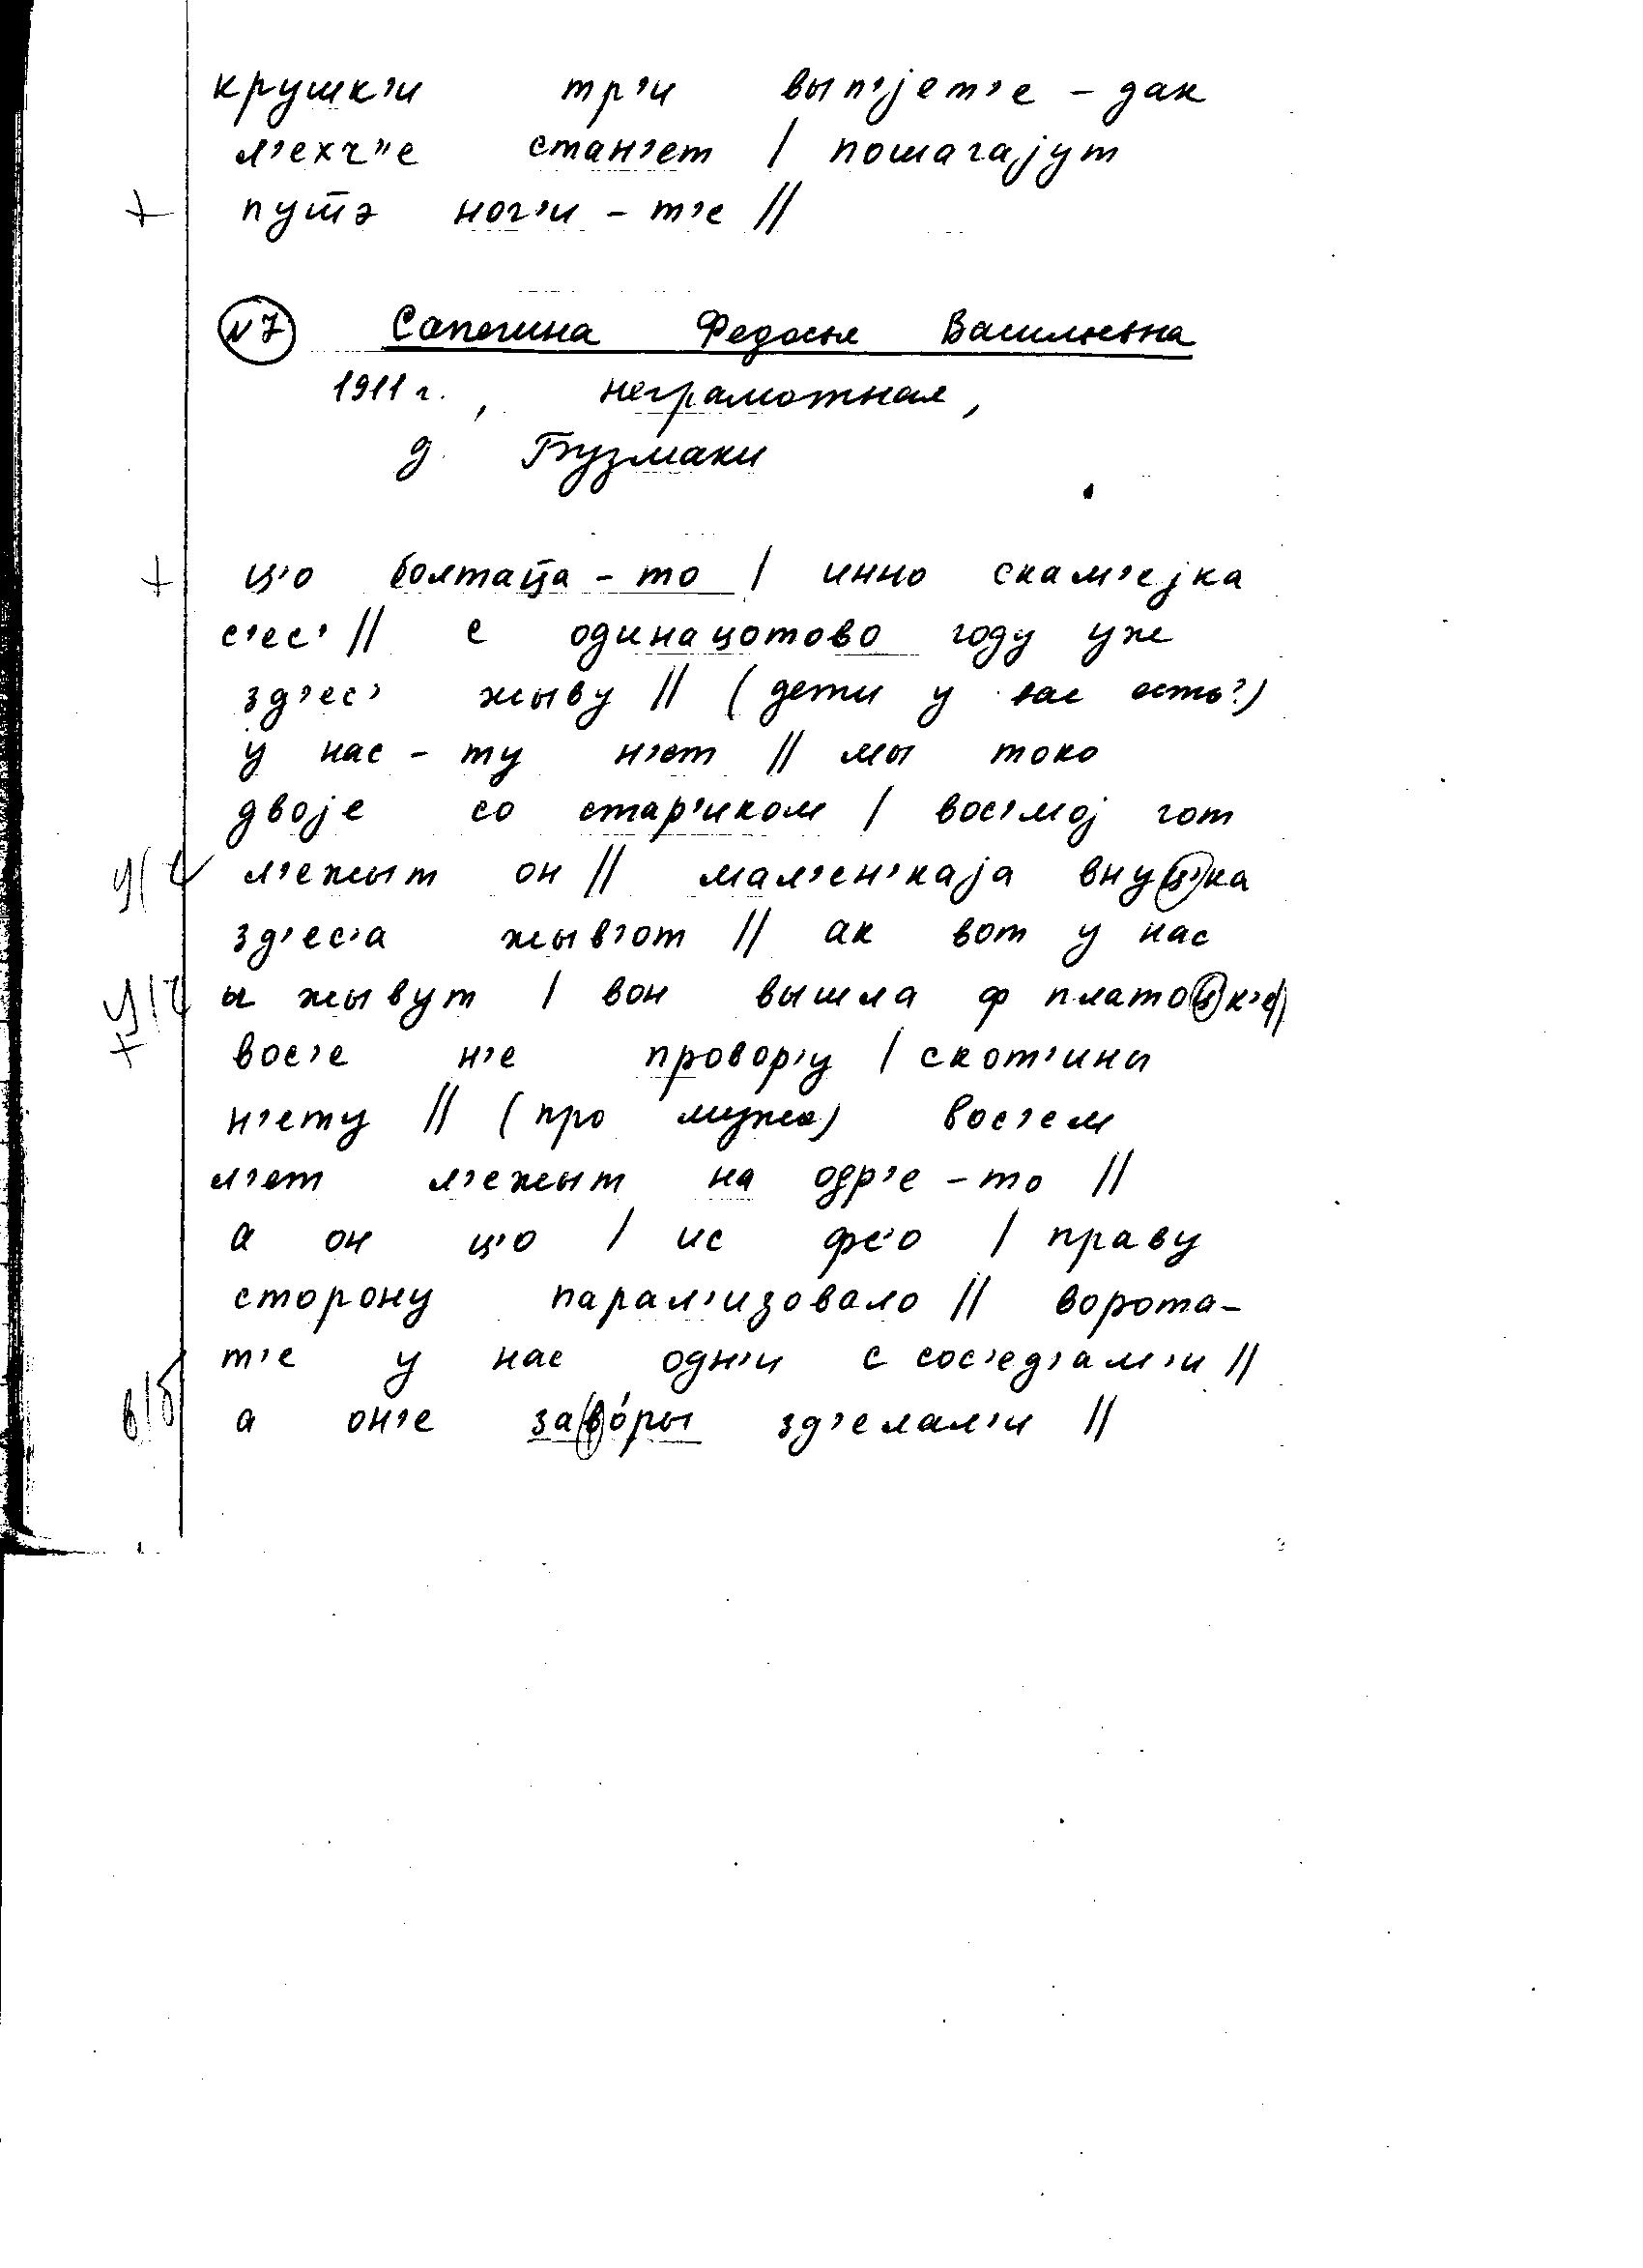 крушк'и тр'и вып'јет'е - дак
л'ехч"е стан'ет | помагајут
+ пут̄э ног'и - т'е ||
№7 Сапегина Федосья Васильевна
1911 г., неграмотная,
д. Бузмаки
+ ц'о болтац̄а - то | инно скам'ејка
с'ес' || с одинацотово году уж
зд'ес' жыву || (дети у вас есть?)
у нас - ту н'ет || мы токо
двоје со стар'иком | вос'мој гот
л'ежыт он || мал'ен'каја внуц'ка
зд'ес'а жыв'от || ак вот у нас
ы жывут | вон вышла ф платоц'к'е ||
вос'е н'е провор'у | скот'ины
н'ету || (про мужа) вос'ем
л'ет л'ежыт на одр'е - то ||
а он ц'о | ис фс'о | праву
сторону парал'изовало || ворота -
т'е у нас одн'и с сос'ед'ам'и ||
в/б а он'е заво́ры зд'елал'и ||